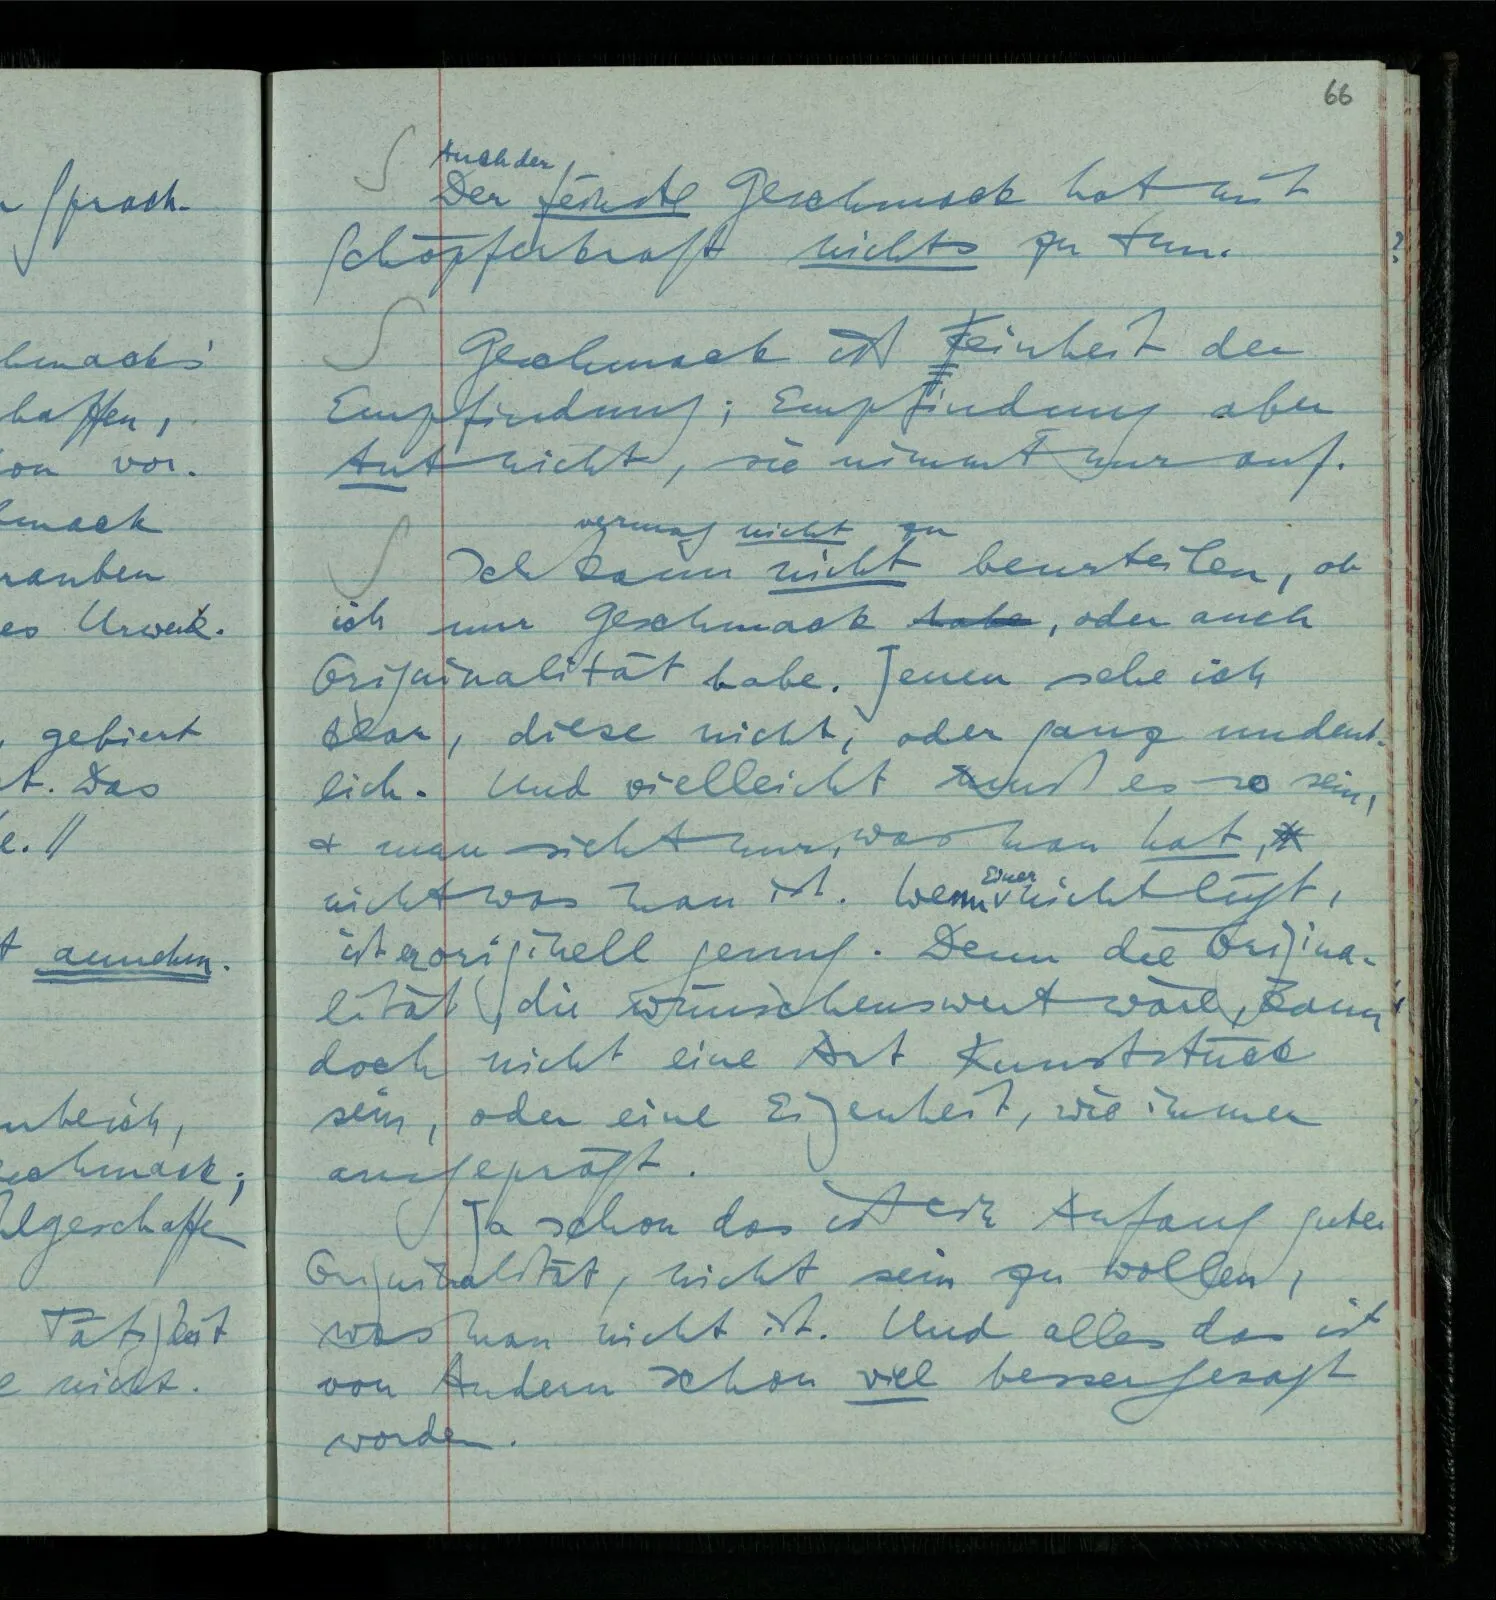 r Sprach-
hmacks'
haffen,
on vor.
hmack
rauben
es Urwerk.
, gebiert
t. Das
e. //
t annehm.
nbeich,
eschmack;
lgeschaffe
Tätigkeit
e nicht.
66
Auch der
Der feinste Geschmack hat mit
Schöpferkraft nichts zu tun.
?
Geschmack ist Feinheit der
Empfindung; Empfindung aber
tut nicht, sie nimmt nur auf.
vermag nicht zu
Ich kann nicht beurteilen, ob
ich nur Geschmack habe, oder auch
Originalität habe. Jenen sehe ich
klar, diese nicht, oder ganz undeut-
lich. Und vielleicht muß es so sein,
& man sieht nur, was man hat,
nicht was man ist. Wenn Einer nicht lügt,
ist er originell genug. Denn die Origina-
lität, die wünschenswert wäre, kann
doch nicht eine Art Kunststück
sein, oder eine Eigenheit, wie immer
ausgeprägt.
Ja schon das ist ein Anfang guter
Originalität, nicht sein zu wollen,
was man nicht ist. Und alles das ist
von Andern schon viel besser gesagt
worden.